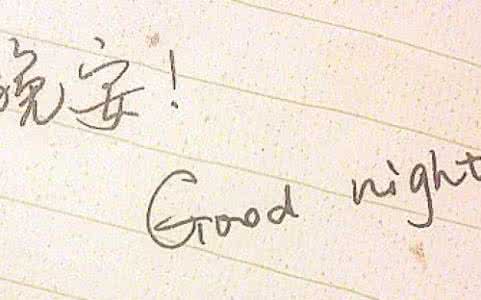 晚安!
Good night